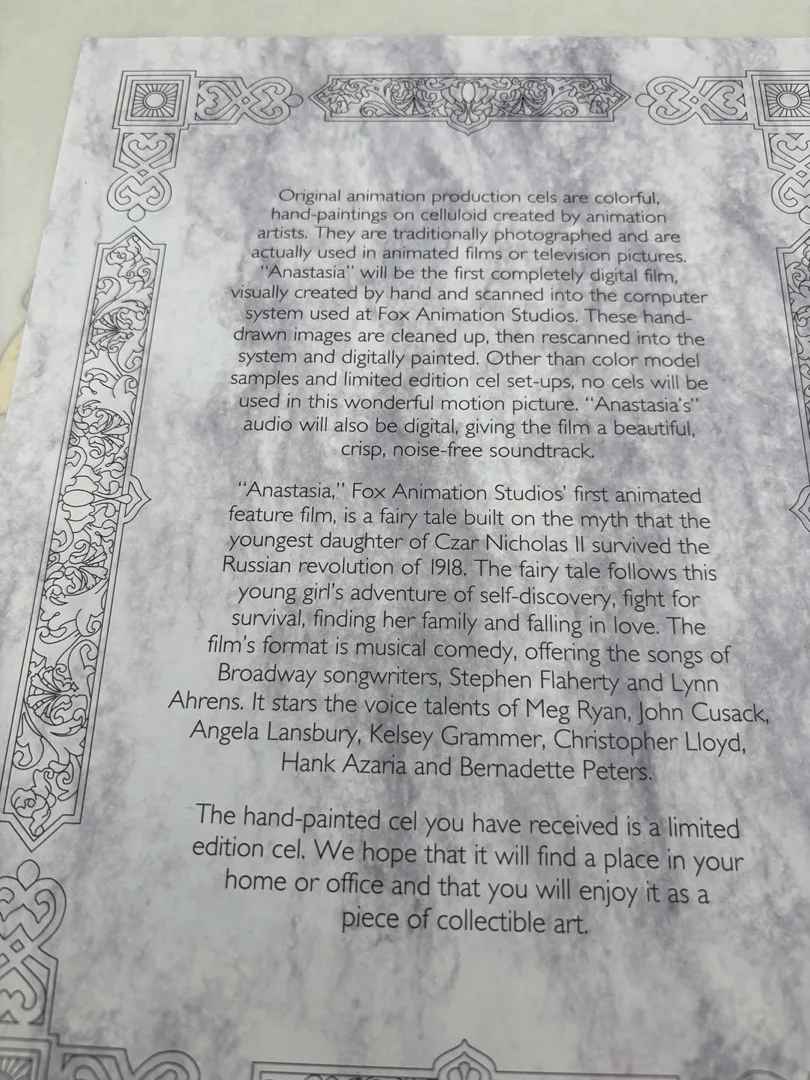 Original animation production cels are colorful,
hand-paintings on celluloid created by animation
artists. They are traditionally photographed and are
actually used in animated films or television pictures.
“Anastasia” will be the first completely digital film,
visually created by hand and scanned into the computer
system used at Fox Animation Studios. These hand-
drawn images are cleaned up, then rescanned into the
system and digitally painted. Other than color model
samples and limited edition cel set-ups, no cels will be
used in this wonderful motion picture. “Anastasia's”
audio will also be digital, giving the film a beautiful,
crisp, noise-free soundtrack.
“Anastasia,” Fox Animation Studios' first animated
feature film, is a fairy tale built on the myth that the
youngest daughter of Czar Nicholas II survived the
Russian revolution of 1918. The fairy tale follows this
young girl's adventure of self-discovery, fight for
survival, finding her family and falling in love. The
film's format is musical comedy, offering the songs of
Broadway songwriters, Stephen Flaherty and Lynn
Ahrens. It stars the voice talents of Meg Ryan, John Cusack,
Angela Lansbury, Kelsey Grammer, Christopher Lloyd,
Hank Azaria and Bernadette Peters.
The hand-painted cel you have received is a limited
edition cel. We hope that it will find a place in your
home or office and that you will enjoy it as a
piece of collectible art.